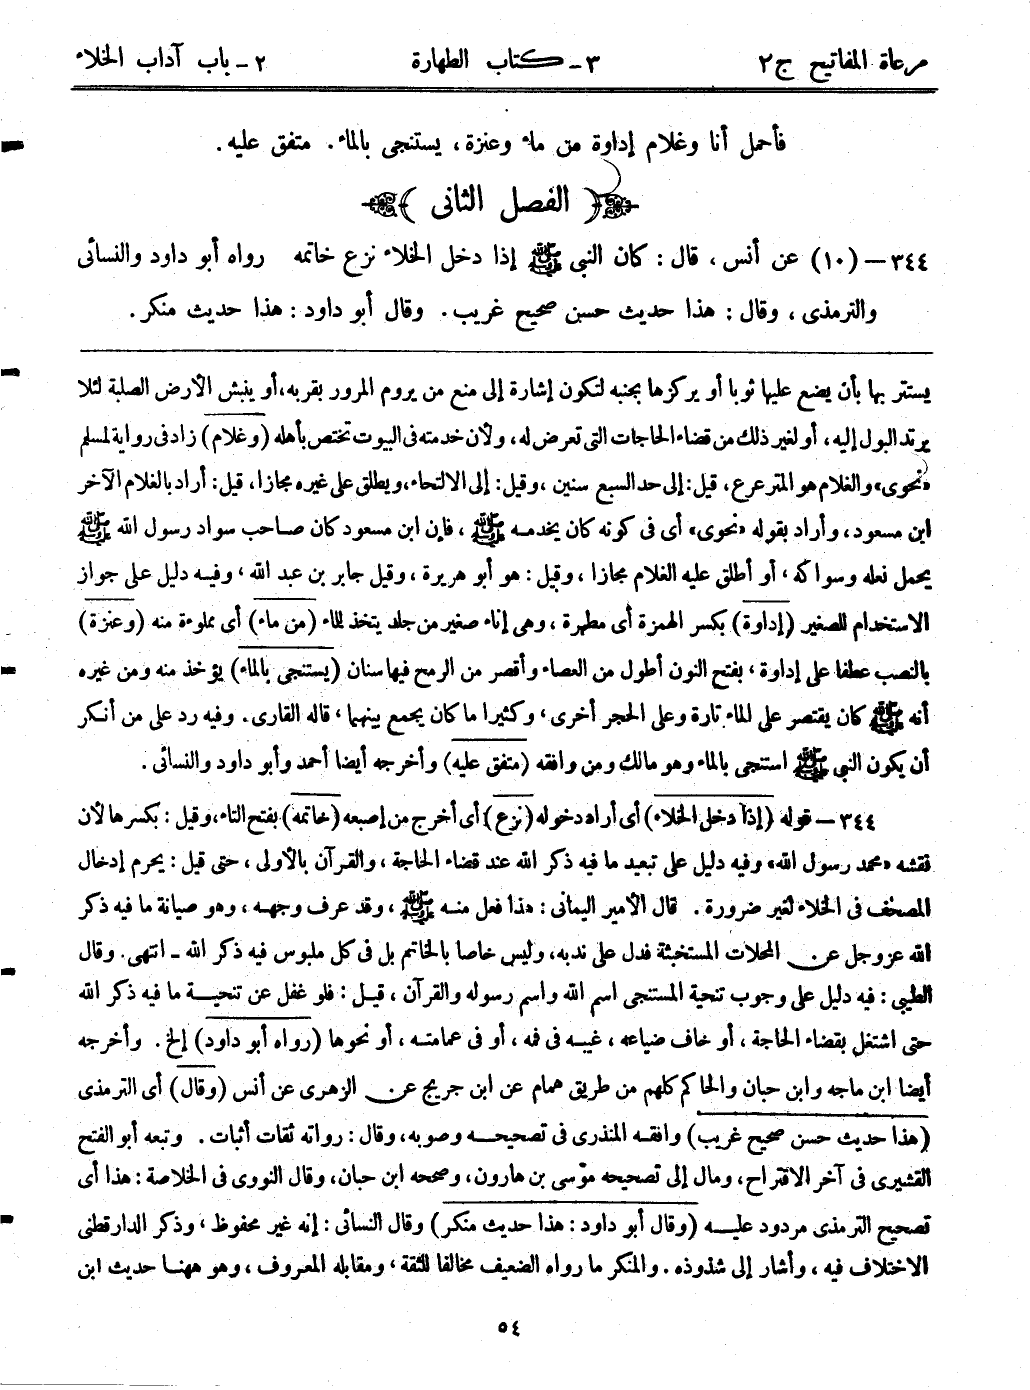 مرعاة المفاتيح ج٢ ٣ - كتاب الطهارة ٢ - باب آداب الخلاء
فأحمل أنا وغلام إداوة من ماء وعنزة، يستنجى بالماء. متفق عليه.
(الفصل الثانى)
٣٤٤ – (١٠) عن أنس، قال: كان النبي ﷺ إذا دخل الخلاء نزع خاتمه رواه أبو داود والنسائى
والترمذى، وقال: هذا حديث حسن صحيح غريب. وقال أبو داود: هذا حديث منكر.
يستتر بها بأن يضع عليها ثوبا أو يركزها بجنبه لتكون إشارة إلى منع من يروم المرور بقربه، أو ينبش الأرض الصلبة لئلا
يرتد البول إليه، أو لغير ذلك من قضاء الحاجات التى تعرض له، ولأن خدمته فى البيوت تختص بأهله (وغلام) زاد فى رواية لمسلم
«نحوى» والغلام هو المترعرع، قيل: إلى حد السبع سنين، وقيل: إلى الالتحاء، ويطلق على غيره مجازا، قيل: أراد بالغلام الآخر
ابن مسعود، وأراد بقوله «نحوى» أى فى كونه كان يخدمه ﷺ، فإن ابن مسعود كان صاحب سواد رسول الله ﷺ
يحمل نعله وسواكه، أو أطلق عليه الغلام مجازا، وقيل: هو أبو هريرة، وقيل جابر بن عبد الله، وفيه دليل على جواز
الاستخدام للصغير (إداوة) بكسر الهمزة أى مطهرة، وهى إناء صغير من جلد يتخذ للماء (من ماء) أى مملوءة منه (وعنزة)
بالنصب عطفا على إداوة، بفتح النون أطول من العصاء وأقصر من الرمح فيها سنان (يستنجى بالماء) يؤخذ منه ومن غيره
أنه ﷺ كان يقتصر على الماء تارة وعلى الحجر أخرى، وكثيرا ما كان يجمع بينهما، قاله القارى. وفيه رد على من أنكر
أن يكون النبي ﷺ استنجى بالماء وهو مالك ومن وافقه (متفق عليه) وأخرجه أيضا أحمد وأبو داود والنسائى.
٣٤٤ – قوله (إذا دخل الخلاء) أى أراد دخوله (نزع) أى أخرج من إصبعه (خاتمه) بفتح التاء، وقيل: بكسرها لأن
نقشه «محمد رسول الله» وفيه دليل على تبعيد ما فيه ذكر الله عند قضاء الحاجة، والقرآن بالأولى، حتى قيل: يحرم إدخال
المصحف فى الخلاء لغير ضرورة. قال الأمير اليمانى: هذا فعل منه ﷺ، وقد عرف وجهه، وهو صيانة ما فيه ذكر
الله عزوجل عن المحلات المستخبثة فدل على ندبه، وليس خاصا بالخاتم بل فى كل ملبوس فيه ذكر الله - انتهى. وقال
الطيبى: فيه دليل على وجوب تنحية المستنجى اسم الله واسم رسوله والقرآن، قيل: فلو غفل عن تنحية ما فيه ذكر الله
حتى اشتغل بقضاء الحاجة، أو خاف ضياعه، غيبه فى فمه، أو فى عمامته، أو نحوها (رواه أبو داود) الخ. وأخرجه
أيضا ابن ماجه وابن حبان والحاكم كلهم من طريق همام عن ابن جريج عن الزهرى عن أنس (وقال) أى الترمذى
(هذا حديث حسن صحيح غريب) وافقه المنذرى فى تصحيحه وصوبه، وقال: رواته ثقات أثبات. وتبعه أبو الفتح
القشيرى فى آخر الاقتراح، ومال إلى تصحيحه موسى بن هارون، وصححه ابن حبان، وقال النووى فى الخلاصة: هذا أى
تصحيح الترمذى مردود عليه (وقال أبو داود: هذا حديث منكر) وقال النسائى: إنه غير محفوظ، وذكر الدارقطنى
الاختلاف فيه، وأشار إلى شذوذه. والمنكر ما رواه الضعيف مخالفا للثقة، ومقابله المعروف، وهو ههنا حديث ابن
٥٤